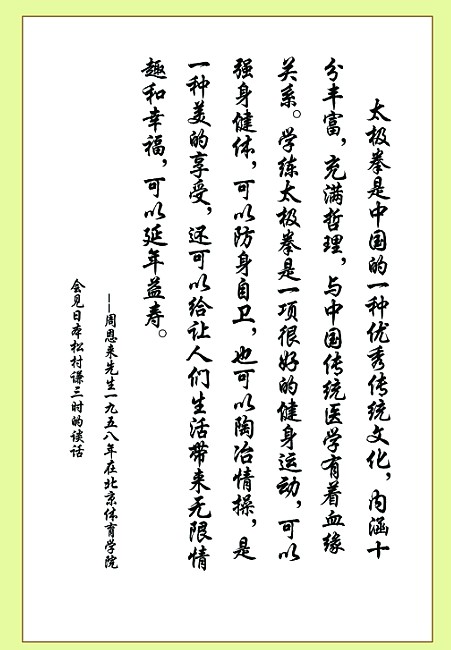 太极拳是中国的一种优秀传统文化，内涵十
分丰富，充满哲理，与中国传统医学有着血缘
关系。学练太极拳是一项很好的健身运动，可以
强身健体，可以防身自卫，也可以陶冶情操，是
一种美的享受，还可以给让人们生活带来无限情
趣和幸福，可以延年益寿。
——周恩来先生一九五八年在北京体育学院
会见日本松村谦三时的谈话